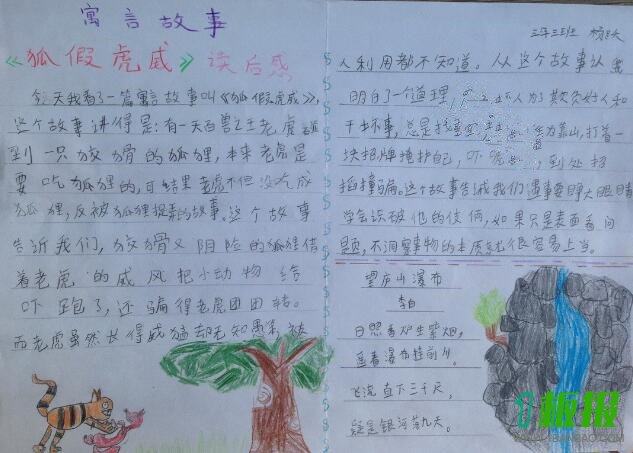 寓言故事
《狐假虎威》读后感
今天我看了一篇寓言故事叫《狐假虎威》,
这个故事讲得是:有一天百兽之王老虎碰
到一只狡猾的狐狸,本来老虎是
要吃狐狸的,可结果老虎不但没吃成
狐狸,反被狐狸捉弄的故事。这个故事
告诉我们,狡猾又阴险的狐狸借
着老虎的威风把小动物给
吓跑了,还骗得老虎团团转。
而老虎虽然长得威猛却无知愚笨,被
三年三班
人利用都不知道。从这个故事认我
明白了一个道理,坏人为了欺负好人和
干坏事,总是找为靠山,打着一
块招牌掩护自己,吓到处招
摇撞骗。这个故事告诫我们遇事要睁大眼睛
学会识破他的伎俩,如果只是表面看问
题,不洞察事物的本质就很容易上当。
望庐山瀑布
李白
日照香炉生紫烟,
遥看瀑布挂前川。
飞流直下三千尺,
疑是银河落九天。
板报